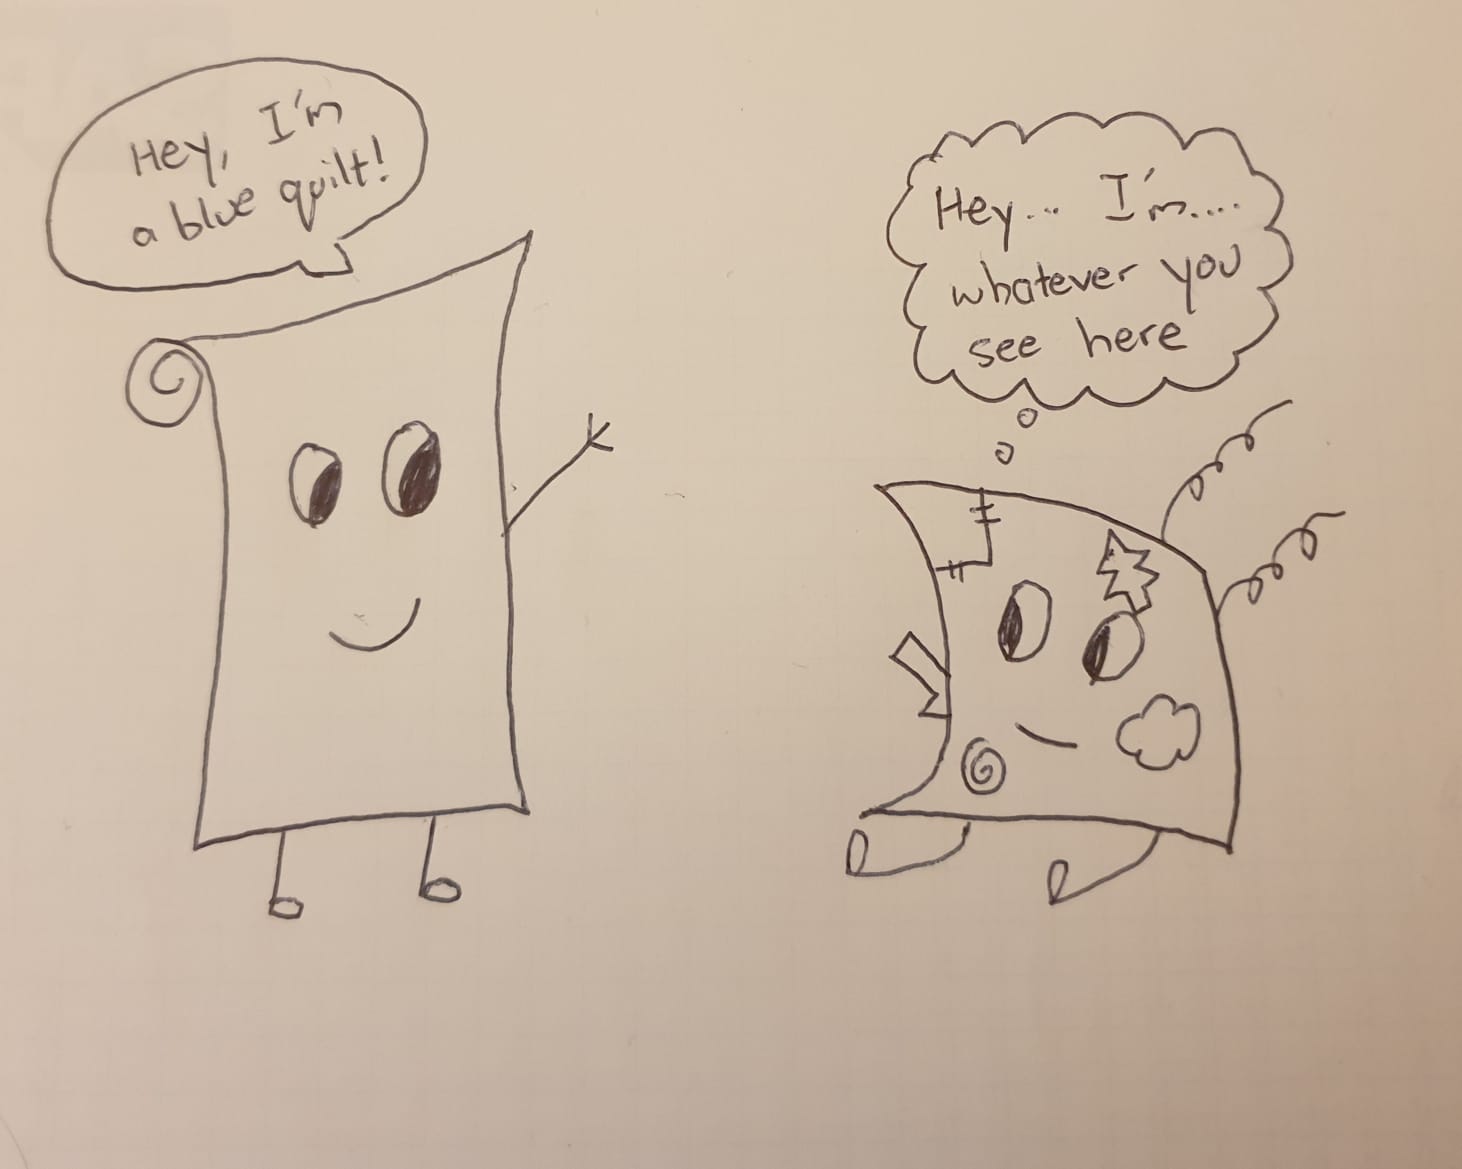 Hey, I'm
a blue quilt!
Hey... I'm....
whatever you
see here